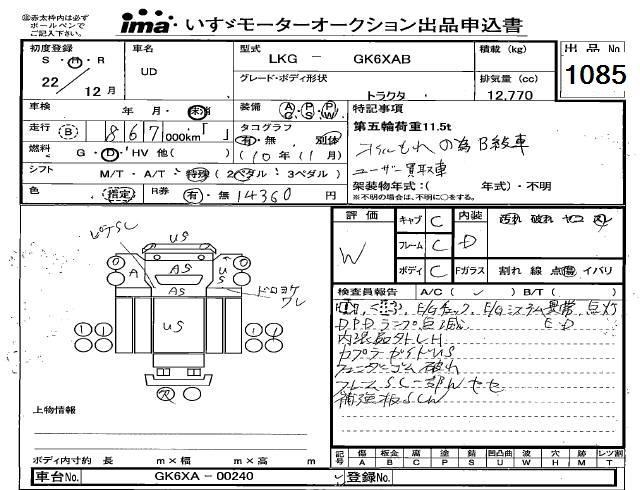 ㊟赤太枠内は必ず
ボールペンで
ご記入下さい。
ima いすゞモーターオークション出品申込書
初度登録
S・H・R
22 12月
車名
UD
型式
LKG － GK6XAB
グレード・ボディ形状
トラクタ
積載 (kg)
排気量 (cc)
12,770
出品No
1085
車検 年 月・抹消
装備 AC PS PW
特記事項
第五輪荷重11.5t
オイルもれの為B級車
ユーザー買取車
走行 B 867,000km「 」
タコグラフ
有・無 別体
(10年11月)
燃料 G・D・HV 他( )
シフト M/T・A/T・特殊 (2ペダル / 3ペダル)
架装物年式:( 年式)・不明
※不明の場合は、不明に○をする。
色 指定 R券 有・無 14360 円
評価
W
キャブ C
フレーム C
ボディ C
内装
D
Fガラス
汚れ 破れ ヤコ 穴
割れ 線 点傷 イバリ
ピテSL
US
0 0
A AS US
AS
0 0
ドロヨケ
ワレ
US
1 1 1 1
R
検査員報告 A/C( ) B/T( )
E/Gチェック、E/Gシステム異常 点灯
D.P.D ランプ点滅 E-D
内装品外トレH
カプラガイドUS
フェンダーゴム破れ
フレームSC一部Wセセ
補強板SCW
上物情報
ボディ内寸約 長 m×幅 m×高 m
記号 傷 A 板金 B 腐 C 塗 P 錆 S 凹凸曲 U 波 W 穴 H 跡 M レツ割 T
車台No. GK6XA－00240
登録No.